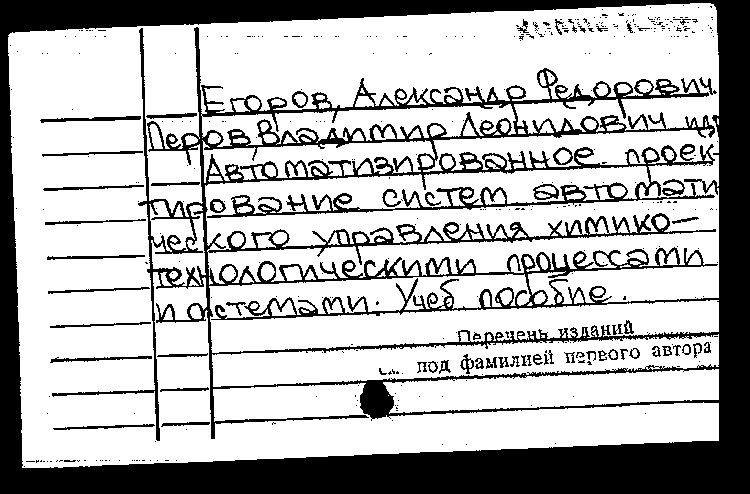 Егоров, Александр Федорович.
Перов, Владимир Леонидович и др
Автоматизированное проек-
тирование систем автомати
ческого управления химико-
технологическими процессами
и системами. Учеб пособие.
Перечень изданий
под фамилией первого автора